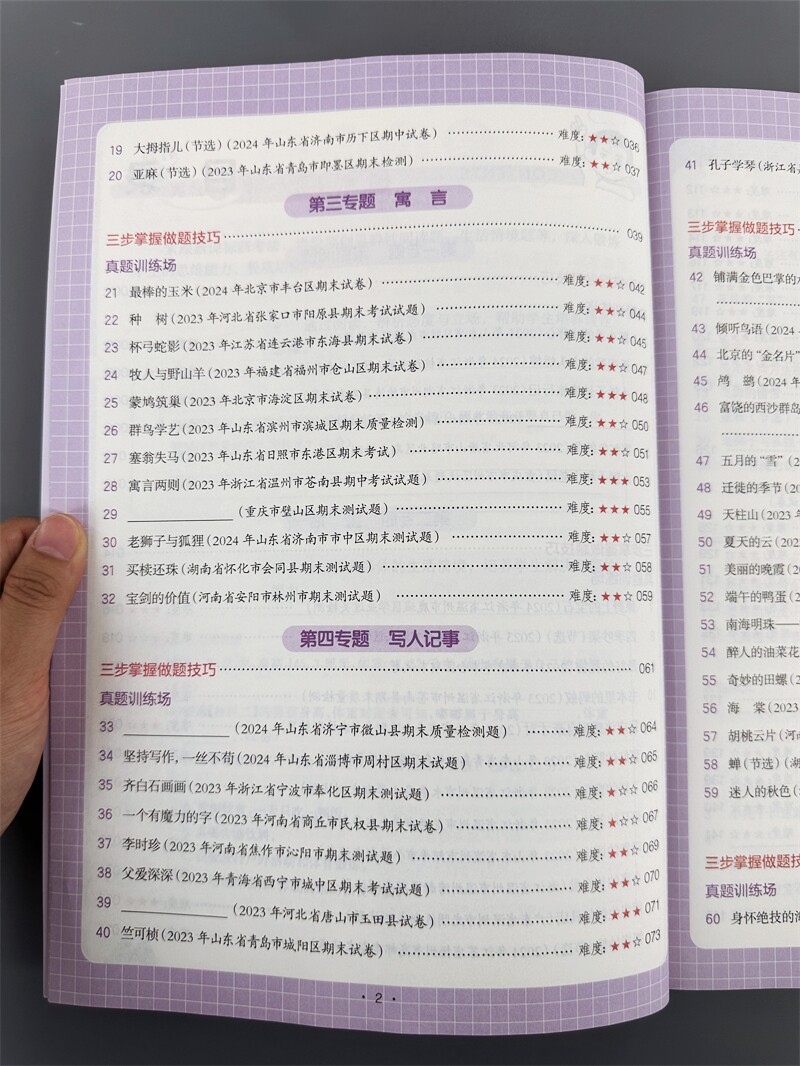 19 大拇指儿(节选)(2024年山东省济南市历下区期中试卷) 难度:★★☆ 036
20 亚麻(节选)(2023年山东省青岛市即墨区期末检测) 难度:★★☆ 037
第三专题 寓言
三步掌握做题技巧 039
真题训练场
21 最棒的玉米(2024年北京市丰台区期末试卷) 难度:★★☆ 042
22 种 树(2023年河北省张家口市阳原县期末考试试题) 难度:★★☆ 044
23 杯弓蛇影(2023年江苏省连云港市东海县期末试卷) 难度:★★☆ 045
24 牧人与野山羊(2023年福建省福州市仓山区期末试卷) 难度:★★☆ 047
25 蒙鸠筑巢(2023年北京市海淀区期末试卷) 难度:★★★ 048
26 群鸟学艺(2023年山东省滨州市滨城区期末质量检测) 难度:★★☆ 050
27 塞翁失马(2023年山东省日照市东港区期末考试) 难度:★★☆ 051
28 寓言两则(2023年浙江省温州市苍南县期中考试试题) 难度:★★★ 053
29 (重庆市璧山区期末测试题) 难度:★★★ 055
30 老狮子与狐狸(2024年山东省济南市市中区期末测试题) 难度:★★☆ 057
31 买椟还珠(湖南省怀化市会同县期末测试题) 难度:★★☆ 058
32 宝剑的价值(河南省安阳市林州市期末测试题) 难度:★★☆ 059
第四专题 写人记事
三步掌握做题技巧 061
真题训练场
33 (2024年山东省济宁市微山县期末质量检测题) 难度:★★☆ 064
34 坚持写作,一丝不苟(2024年山东省淄博市周村区期末试题) 难度:★★☆ 065
35 齐白石画画(2023年浙江省宁波市奉化区期末测试题) 难度:★☆☆ 066
36 一个有魔力的字(2023年河南省商丘市民权县期末试卷) 难度:★☆☆ 067
37 李时珍(2023年河南省焦作市沁阳市期末测试题) 难度:★★☆ 069
38 父爱深深(2023年青海省西宁市城中区期末考试试题) 难度:★★☆ 070
39 (2023年河北省唐山市玉田县试卷) 难度:★★★ 071
40 竺可桢(2023年山东省青岛市城阳区期末试卷) 难度:★★☆ 073
· 2 ·
41 孔子学琴(浙江省
三步掌握做题技巧
真题训练场
42 铺满金色巴掌的
43 倾听鸟语(2024
44 北京的“金名片”
45 鸿 鹄(2024年
46 富饶的西沙群岛
47 五月的“雪”(2
48 迁徙的季节(20
49 天柱山(2023年
50 夏天的云(202
51 美丽的晚霞(20
52 端午的鸭蛋(2
53 南海明珠——
54 醉人的油菜花
55 奇妙的田螺(2
56 海 棠(2023
57 胡桃云片(河南
58 蝉(节选)(湖
59 迷人的秋色(
三步掌握做题技
真题训练场
60 身怀绝技的